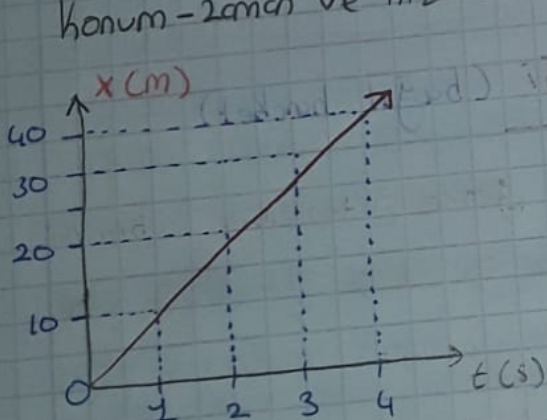 Konum - Zaman ve
x (m)
40
30
20
10
0
1 2 3 4
t (s)